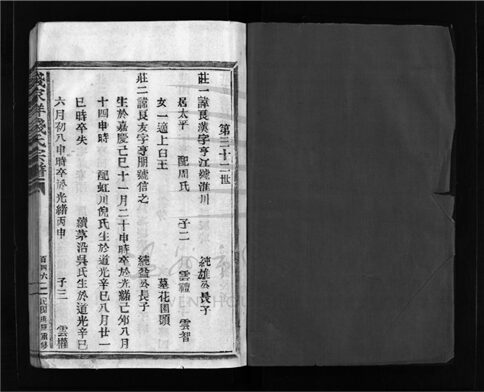 第三十二世
莊一 諱良漢字亨江號淮川 純雄公長子
居太平 配周氏 子二 雲禮 雲智
女一適上臼王
莊二 諱良友字亨朋號信之 純益公長子
生於嘉慶己巳十一月二十申時卒於光緒己卯八月
十四申時 配虹川倪氏生於道光辛巳八月廿一
巳時卒失 續茅沿吳氏生於道光辛巳
六月初八申時卒於光緒丙申 子三 雲權
錢氏宗譜
百四六
民國
重修